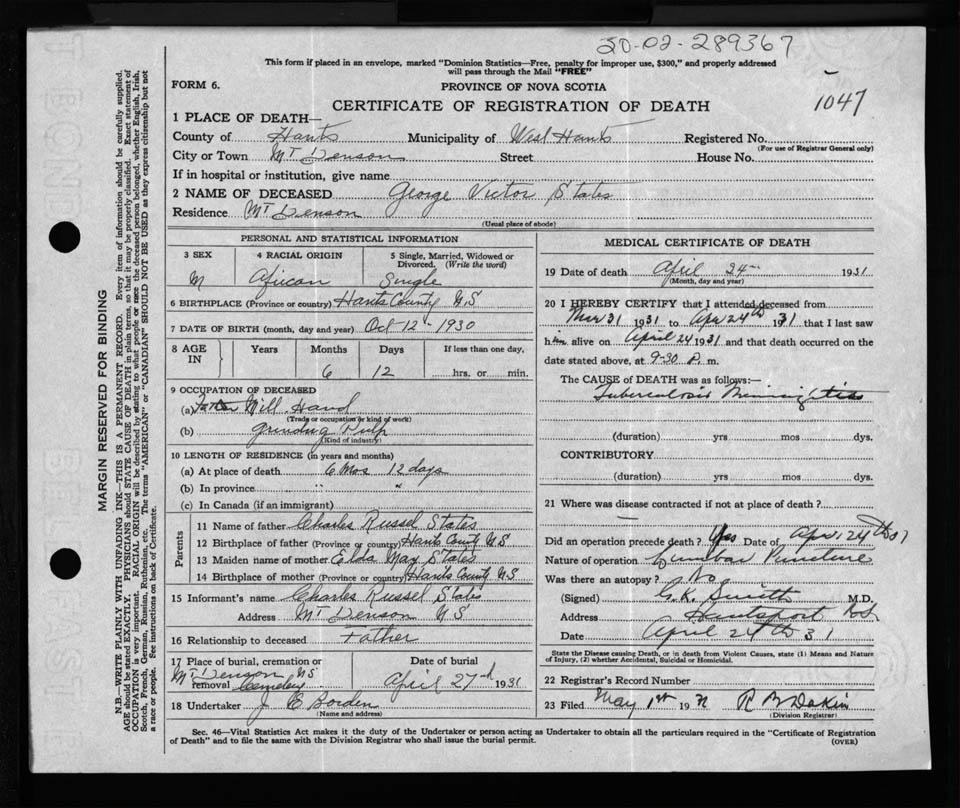 20-02-289367
This form if placed in an envelope, marked "Dominion Statistics—Free, penalty for improper use, $300," and properly addressed
will pass through the Mail "FREE"
FORM 6.
PROVINCE OF NOVA SCOTIA
1047
CERTIFICATE OF REGISTRATION OF DEATH
1 PLACE OF DEATH—
County of Hants Municipality of West Hants Registered No.
(For use of Registrar General only)
City or Town Mt Denson Street House No.
If in hospital or institution, give name
2 NAME OF DECEASED George Victor States
Residence Mt Denson
(Usual place of abode)
PERSONAL AND STATISTICAL INFORMATION
3 SEX 4 RACIAL ORIGIN 5 Single, Married, Widowed or
Divorced. (Write the word)
M African Single
6 BIRTHPLACE (Province or country) Hants County N.S
7 DATE OF BIRTH (month, day and year) Oct 12 - 1930
8 AGE IN Years Months Days If less than one day,
6 12 hrs. or min.
9 OCCUPATION OF DECEASED
(a) Father Mill Hand
(Trade or occupation or kind of work)
(b) Grinding Pulp
(Kind of industry)
10 LENGTH OF RESIDENCE (in years and months)
(a) At place of death 6 Mos 12 days
(b) In province " "
(c) In Canada (if an immigrant)
Parents
11 Name of father Charles Russel States
12 Birthplace of father (Province or country) Hants County N.S
13 Maiden name of mother Elda May States
14 Birthplace of mother (Province or country) Hants County N.S
15 Informant's name Charles Russel States
Address Mt Denson N S
16 Relationship to deceased Father
17 Place of burial, cremation or removal Mt Denson NS Cemetery
Date of burial April 27th 1931
18 Undertaker J E Borden
(Name and address)
MEDICAL CERTIFICATE OF DEATH
19 Date of death April 24 1931
(Month, day and year)
20 I HEREBY CERTIFY that I attended deceased from
Mar 31 1931 to Apr 24th 1931 that I last saw
him alive on April 24 1931 and that death occurred on the
date stated above, at 9-30 P. m.
The CAUSE OF DEATH was as follows:
Tuberculosis Meningitis
(duration) yrs mos dys.
CONTRIBUTORY
(duration) yrs mos dys.
21 Where was disease contracted if not at place of death?
Did an operation precede death? Yes Date of Apr. 24th 31
Nature of operation Lumbar Puncture
Was there an autopsy? No
(Signed) G.K. Smith M.D.
Address Hantsport N.S.
Date April 24th 31
State the Disease causing Death, or in death from Violent Causes, state (1) Means and Nature
of Injury, (2) whether Accidental, Suicidal or Homicidal.
22 Registrar's Record Number
23 Filed May 1st 19 R B Dakin
(Division Registrar)
Sec. 46—Vital Statistics Act makes it the duty of the Undertaker or person acting as Undertaker to obtain all the particulars required in the "Certificate of Registration
of Death" and to file the same with the Division Registrar who shall issue the burial permit.
(OVER)
MARGIN RESERVED FOR BINDING
N.B.—WRITE PLAINLY WITH UNFADING INK—THIS IS A PERMANENT RECORD. Every item of information should be carefully supplied.
AGE should be stated EXACTLY. PHYSICIANS should STATE CAUSE OF DEATH in plain terms, so that it may be properly classified. Exact statement of
OCCUPATION is very important. RACIAL ORIGIN will be described by stating to what people or race the deceased person belonged, whether English, Irish,
Scotch, French, German, Russian, Ruthenian, etc. The terms "AMERICAN" or "CANADIAN" SHOULD NOT BE USED as they express citizenship but not
a race or people. See instructions on back of Certificate.